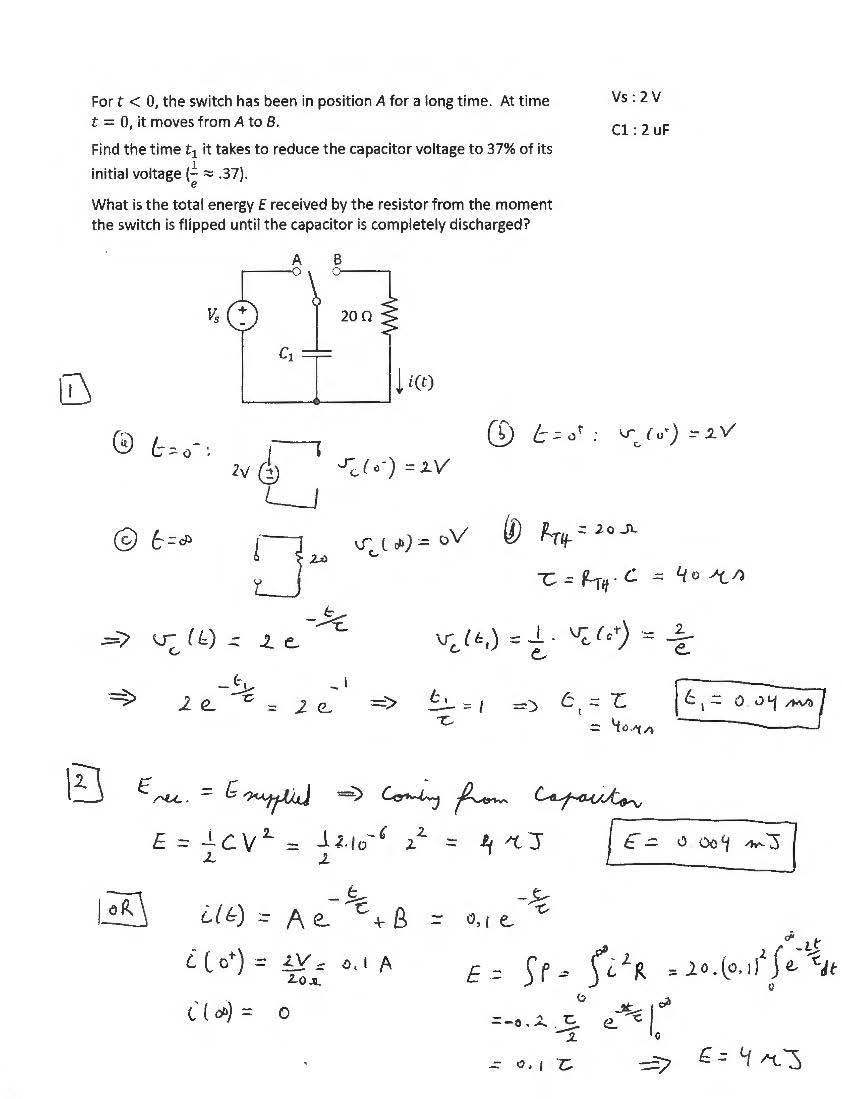 For t < 0, the switch has been in position A for a long time. At time
t = 0, it moves from A to B.
Find the time t₁ it takes to reduce the capacitor voltage to 37% of its
initial voltage (1/e ≈ .37).
What is the total energy E received by the resistor from the moment
the switch is flipped until the capacitor is completely discharged?
Vs : 2 V
C1 : 2 uF
A B
Vs + - 20 Ω
C₁
i(t)
1
(a) t=0⁻: 2V + - v_c(0⁻) = 2V
(b) t=0⁺: v_c(0⁺) = 2V
(c) t=∞ 20 v_c(∞) = 0V
(d) R_TH = 20 Ω
τ = R_TH · C = 40 μs
⇒ v_c(t) = 2 e^(-t/τ) v_c(t₁) = 1/e · v_c(0⁺) = 2/e
⇒ 2e^(-t₁/τ) = 2e⁻¹ ⇒ t₁/τ = 1 ⇒ t₁ = τ t₁ = 0.04 ms
= 40 μs
2 E rec. = E supplied ⇒ Coming from Capacitor
E = 1/2 CV² = 1/2 2.10⁻⁶ 2² = 4 μJ E = 0.004 mJ
OR i(t) = A e^(-t/τ) + B = 0,1 e^(-t/τ)
i(0⁺) = 2V/20Ω = 0.1 A
i(∞) = 0
E = ∫P = ∫₀^∞ i²R = 20.(0,1)² ∫₀^∞ e^(-2t/τ) dt
= -0.2 . τ/2 e^(-2t/τ) |₀^∞
= 0.1 τ ⇒ E = 4 μJ